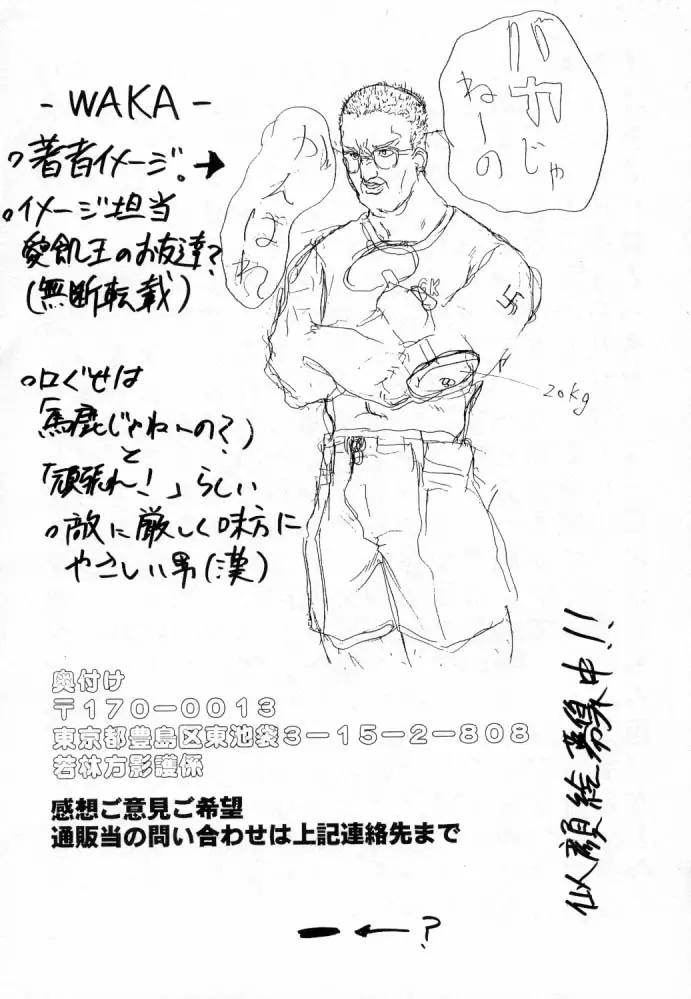 - WAKA -
○著者イメージ。→
○イメージ担当
愛飢王のお友達?
(無断転載)
バカじゃ
ねーの
がんばれ
GK
卐
20kg
○口ぐせは
「馬鹿じゃねーの?」
と
「頑張れ!」らしい
○敵に厳しく味方に
やさしい男(漢)
似顔絵募集中!!
奥付け
〒170-0013
東京都豊島区東池袋3-15-2-808
若林方影護係
感想ご意見ご希望
通販当の問い合わせは上記連絡先まで
ー←?